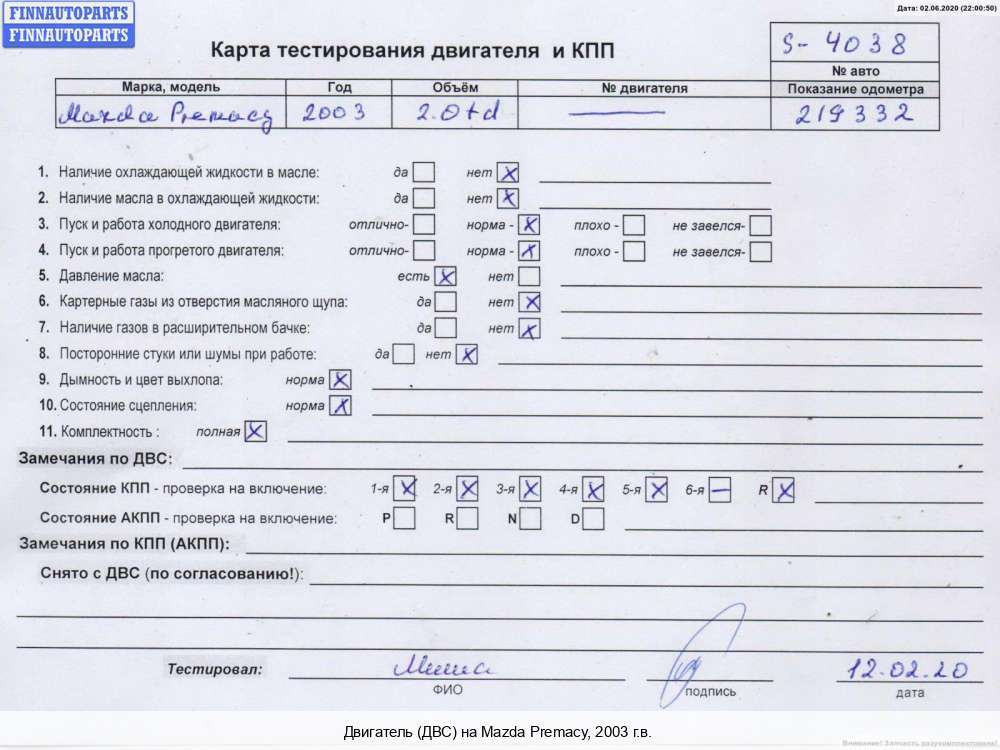 FINNAUTOPARTS
FINNAUTOPARTS
Дата: 02.06.2020 (22:00:50)
Карта тестирования двигателя и КПП
S- 4038
№ авто
Марка, модель Год Объём № двигателя Показание одометра
Mazda Premacy 2003 2.0td — 219332
1. Наличие охлаждающей жидкости в масле: да нет X
2. Наличие масла в охлаждающей жидкости: да нет X
3. Пуск и работа холодного двигателя: отлично- норма - X плохо - не завелся-
4. Пуск и работа прогретого двигателя: отлично- норма - X плохо - не завелся-
5. Давление масла: есть X нет
6. Картерные газы из отверстия масляного щупа: да нет X
7. Наличие газов в расширительном бачке: да нет X
8. Посторонние стуки или шумы при работе: да нет X
9. Дымность и цвет выхлопа: норма X
10. Состояние сцепления: норма X
11. Комплектность : полная X
Замечания по ДВС:
Состояние КПП - проверка на включение: 1-я X 2-я X 3-я X 4-я X 5-я X 6-я — R X
Состояние АКПП - проверка на включение: P R N D
Замечания по КПП (АКПП):
Снято с ДВС (по согласованию!):
Тестировал: Миша 12.02.20
ФИО подпись дата
Двигатель (ДВС) на Mazda Premacy, 2003 г.в.
Внимание! Запчасть разукомплектована!